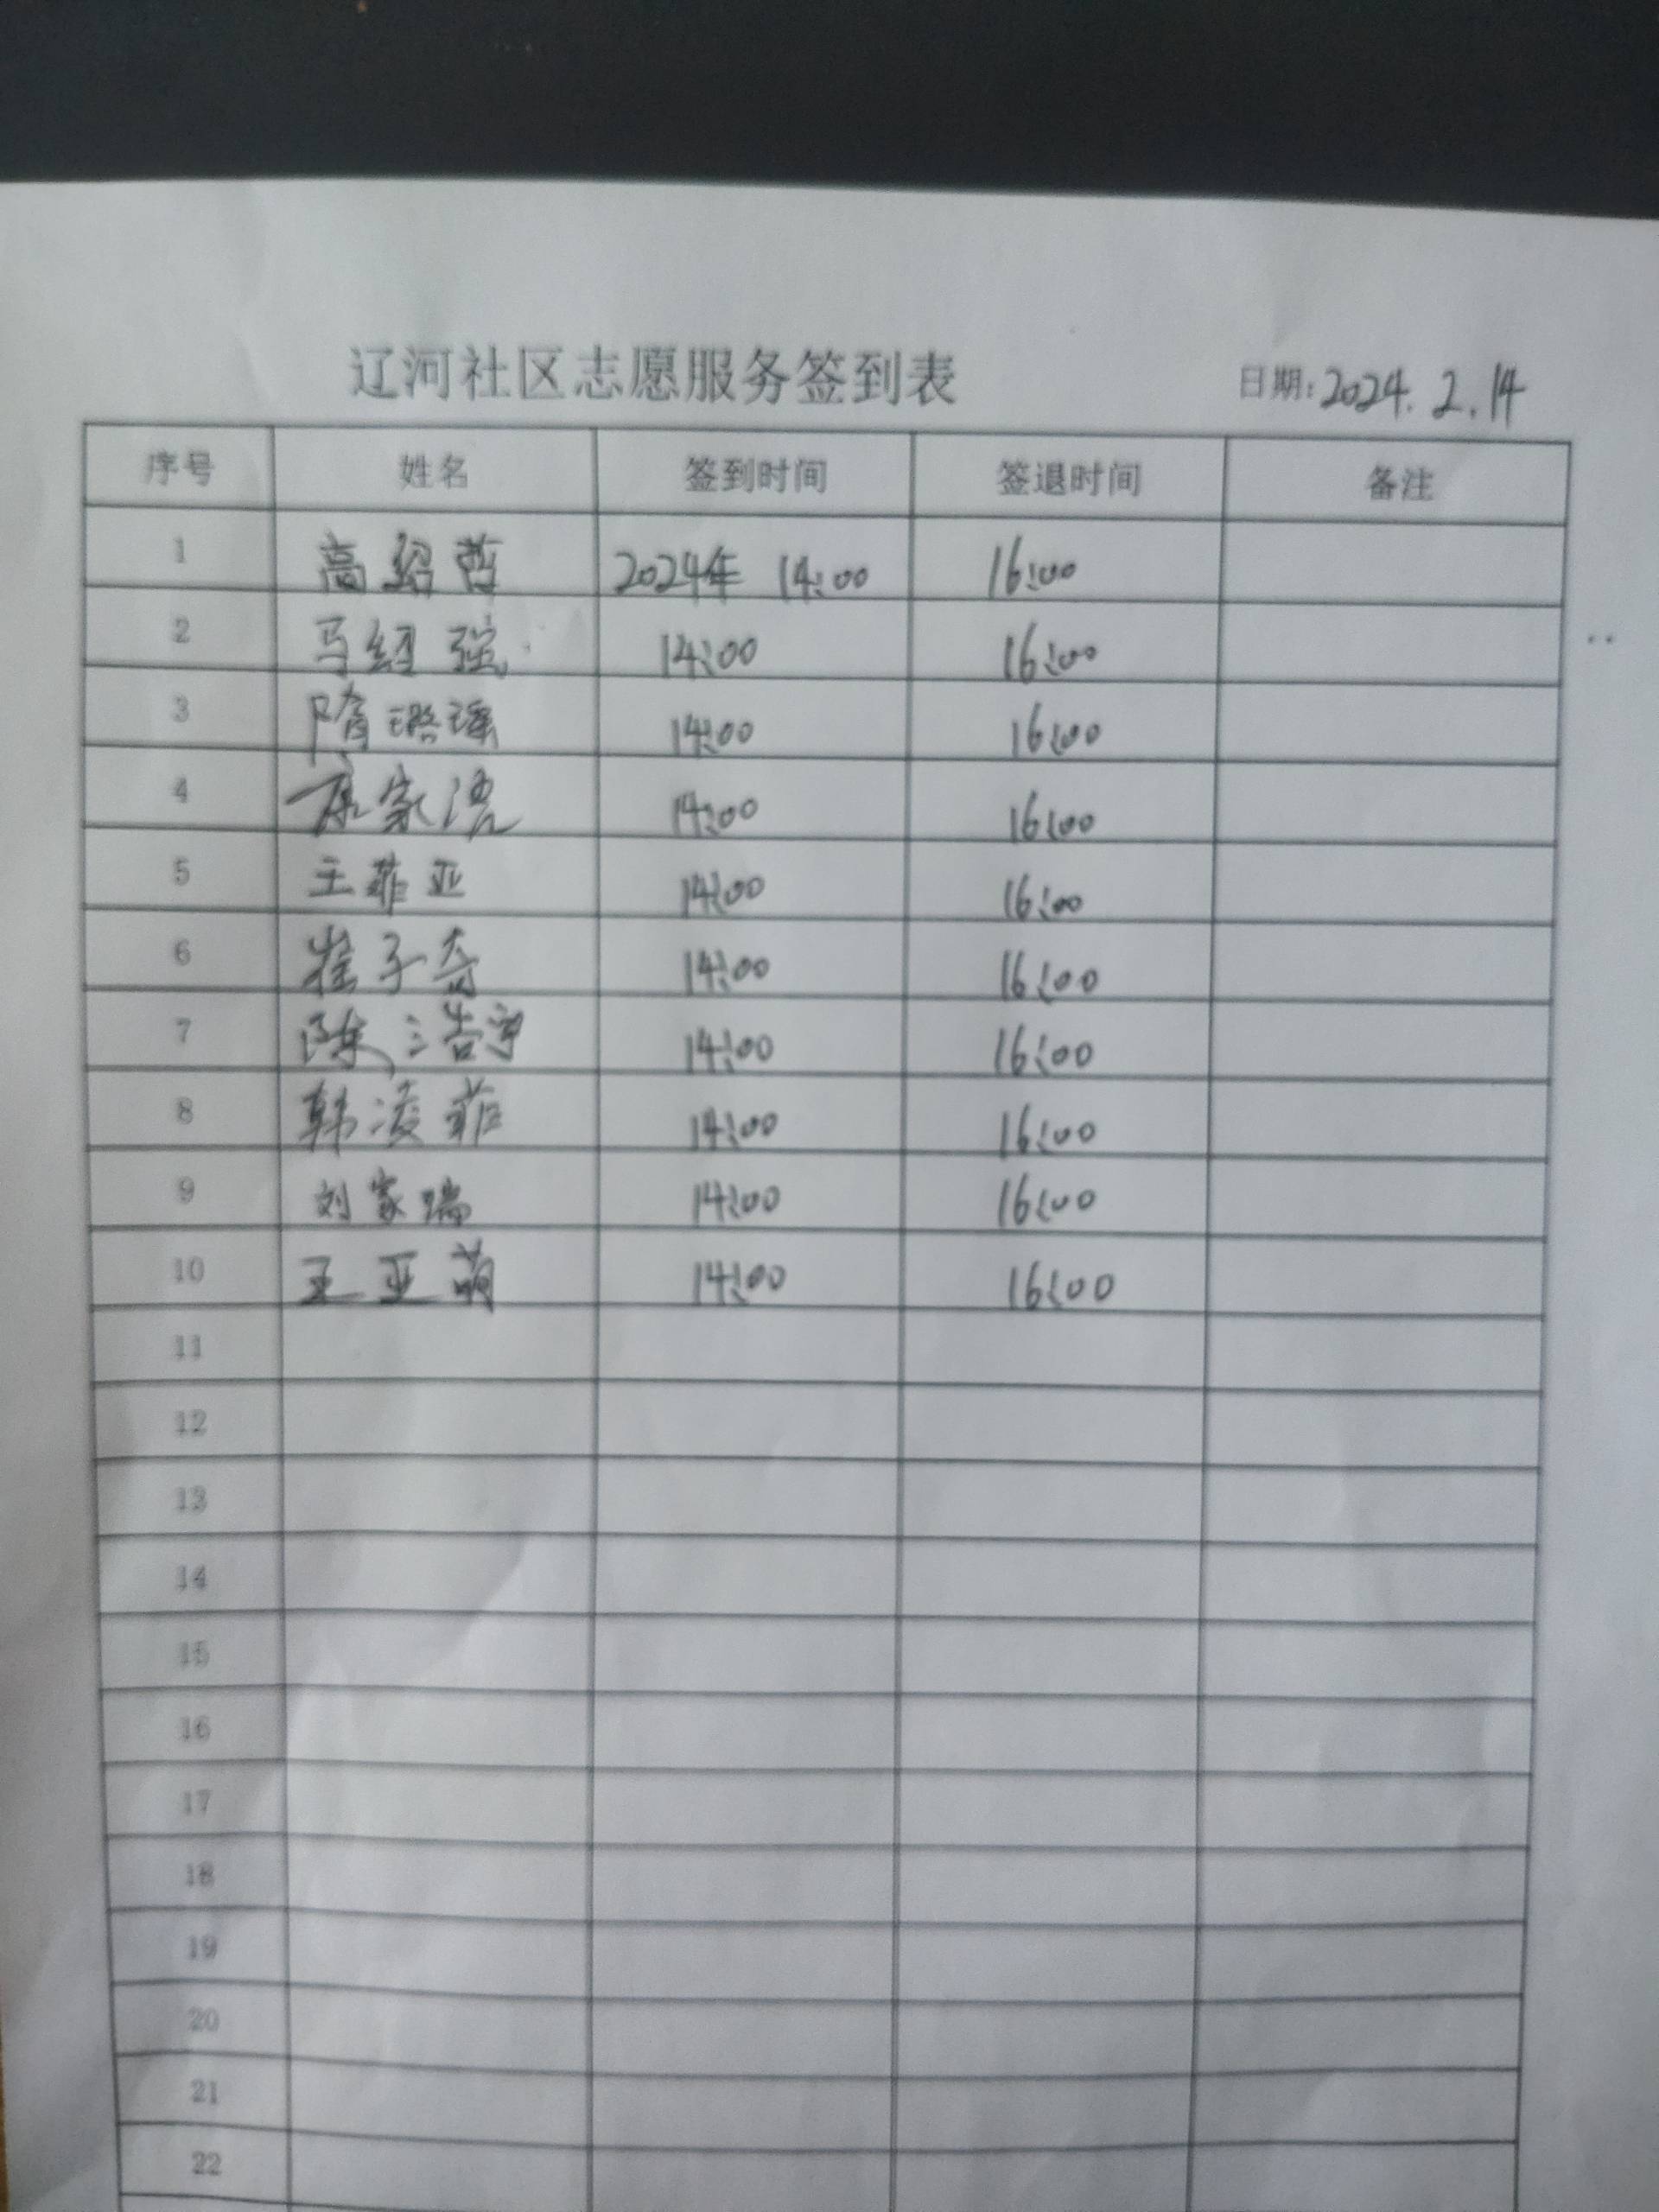 辽河社区志愿服务签到表 日期:2024.2.14
序号 姓名 签到时间 签退时间 备注
1 高绍哲 2024年 14:00 16:00
2 马绍强 14:00 16:00
3 隋璐瑶 14:00 16:00
4 家 14:00 16:00
5 王菲亚 14:00 16:00
6 崔子奇 14:00 16:00
7 陈浩宇 14:00 16:00
8 韩凌菲 14:00 16:00
9 刘家瑞 14:00 16:00
10 王亚萌 14:00 16:00
11
12
13
14
15
16
17
18
19
20
21
22